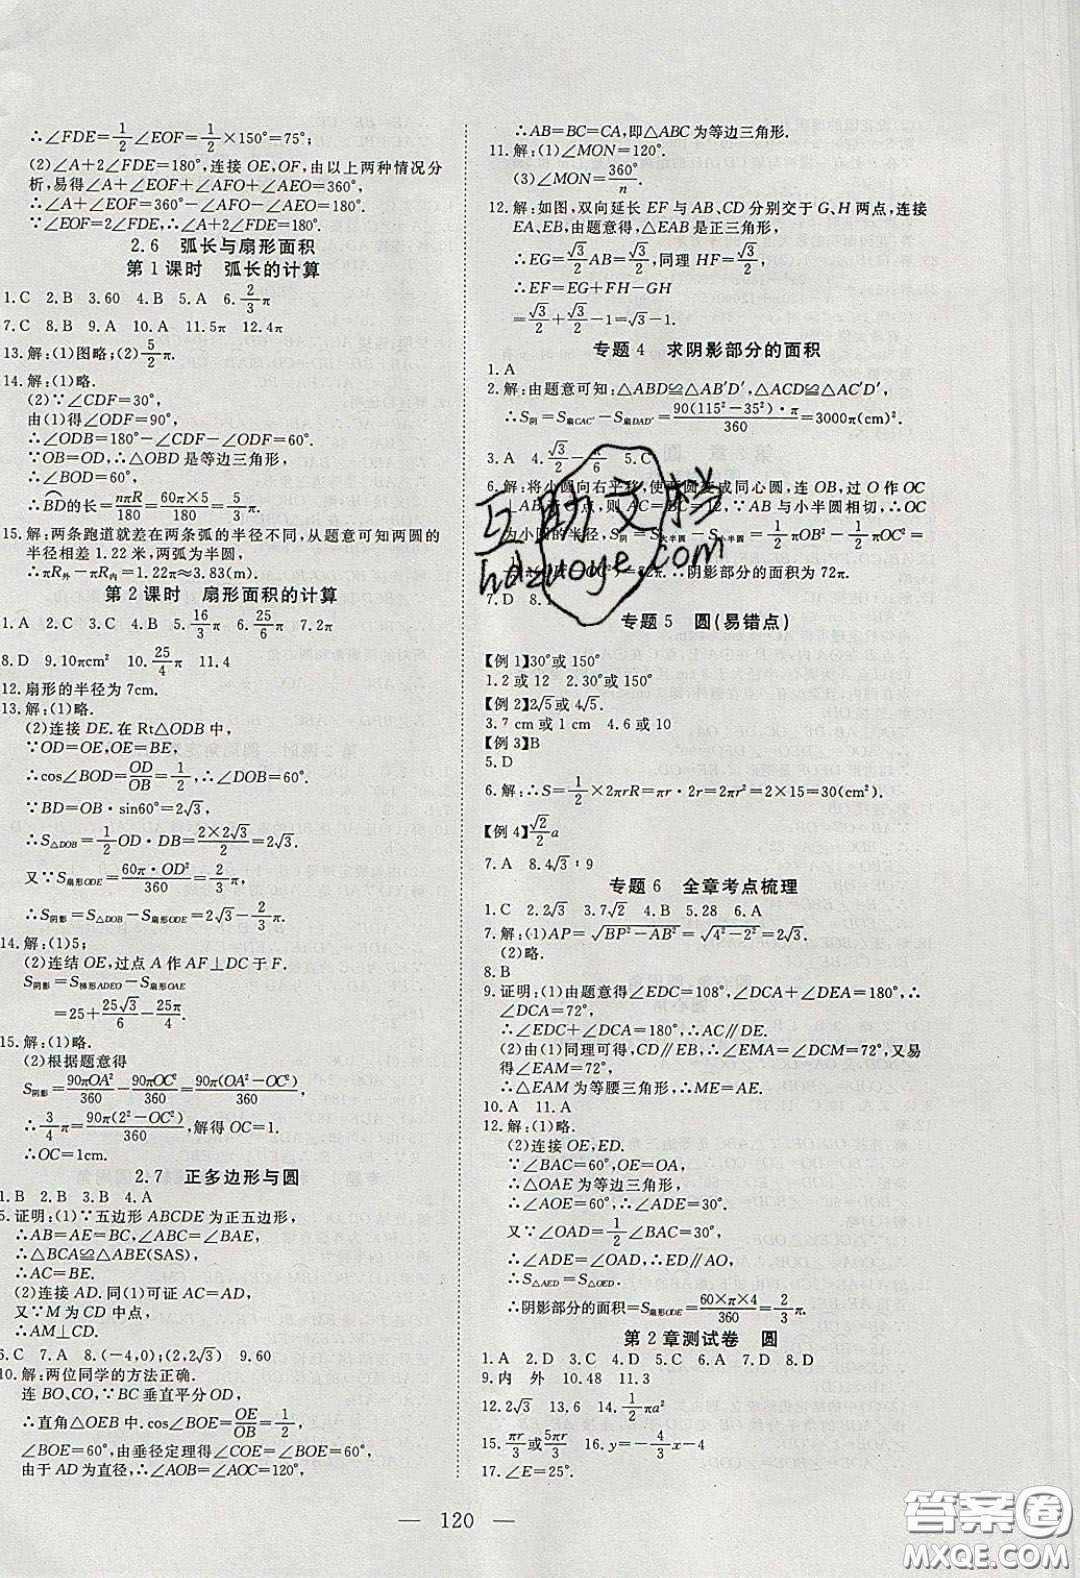 ∴∠FDE=1/2∠EOF=1/2×150°=75°;
(2)∠A+2∠FDE=180°,连接OE,OF,由以上两种情况分
析,易得∠A+∠EOF+∠AFO+∠AEO=360°,
∴∠A+∠EOF=360°-∠AFO-∠AEO=180°.
∵∠EOF=2∠FDE,∴∠A+2∠FDE=180°.
2.6 弧长与扇形面积
第1课时 弧长的计算
1.C 2.B 3.60 4.B 5.A 6.2/3π
7.C 8.B 9.A 10.A 11.5π 12.4π
13.解:(1)图略;(2)5/2π.
14.解:(1)略.
(2)∵∠CDF=30°,
由(1)得∠ODF=90°,
∴∠ODB=180°-∠ODF-∠CDF=60°.
∵OB=OD,∴△OBD是等边三角形,
∴∠BOD=60°.
∴BD的长=nπR/180=60π×5/180=5/3π.
15.解:两条跑道就差在两条弧的半径不同,从题意可知两圆的
半径相差1.22米,两弧为半圆,
∴πR外-πR内=1.22π≈3.83(m).
第2课时 扇形面积的计算
1.A 2.C 3.D 4.B 5.16/3π 6.25/6π 7.2π
8.D 9.10πcm² 10.25/4π 11.4
12.扇形的半径为7cm.
13.解:(1)略.
(2)连接DE.在Rt△ODB中,
∵OD=OE,OE=BE,
∴cos∠BOD=OD/OB=1/2,∴∠DOB=60°.
∵BD=OB·sin60°=2√3,
∴S△DOB=1/2OD·DB=2×2√3/2=2√3.
又∵S扇形ODE=60π·OD²/360=2/3π,
∴S阴影=S△DOB-S扇形ODE=2√3-2/3π.
14.解:(1)5;
(2)连结OE,过点A作AF⊥DC于F.
S阴影=S梯形ADEO-S扇形OAE
=25+25√3/6-25/4π.
15.解:(1)略.
(2)根据题意得
S阴影=90πOA²/360-90πOC²/360=90π(OA²-OC²)/360,
∴3/4π=90π(2²-OC²)/360,解得OC=1.
∴OC=1cm.
2.7 正多边形与圆
1.B 2.B 3.B 4.A
5.证明:(1)∵五边形ABCDE为正五边形,
∴AB=AE=BC,∠ABC=∠BAE,
∴△BCA≌△ABE(SAS),
∴AC=BE.
(2)连接AD.同(1)可证AC=AD,
又∵M为CD中点,
∴AM⊥CD.
6.C 7.A 8.(-4,0);(2,2√3) 9.60
10.解:两位同学的方法正确.
连BO,CO,∵BC垂直平分OD,
∴直角△OEB中.cos∠BOE=OE/OB=1/2,
∠BOE=60°,由垂径定理得∠COE=∠BOE=60°,
由于AD为直径,∴∠AOB=∠AOC=120°,
∴AB=BC=CA,即△ABC为等边三角形.
11.解:(1)∠MON=120°.
(3)∠MON=360°/n.
12.解:如图,双向延长EF与AB、CD分别交于G、H两点,连接
EA、EB,由题意得,△EAB是正三角形,
∴EG=√3/2AB=√3/2,同理HF=√3/2,
∴EF=EG+FH-GH
=√3/2+√3/2-1=√3-1.
专题4 求阴影部分的面积
1.A
2.解:由题意可知:△ABD≌△AB′D′,△ACD≌△AC′D′,
∴S阴=S扇CAC′-S扇DAD′=90(115²-35²)·π/360=3000π(cm)².
3.A 4.√3/2-π/6 5.C
6.解:将小圆向右平移,使两圆变成同心圆,连OB,过O作OC
⊥AB于C点,则AC=BC=12,∵AB与小半圆相切,∴OC
为小圆的半径,S阴=S大半圆-S小半圆=1/2πOB²-1/2πOC²=
π(OB²-OC²)=72π.∴阴影部分的面积为72π.
7.D 8.
专题5 圆(易错点)
【例1】30°或150°
1.2或12 2.30°或150°
【例2】2√5或4√5.
3.7 cm或1 cm 4.6或10
【例3】B
5.D
6.解:∴S=1/2×2πrR=πr·2R=2×15=30(cm²).
【例4】√2/2a
7.A 8.4√3∶9
专题6 全章考点梳理
1.C 2.2√3 3.7√2 4.B 5.28 6.A
7.解:(1)AP=√(BP²-AB²)=√(4²-2²)=2√3.
(2)略.
8.B
9.证明:(1)由题意得∠EDC=108°,∠DCA+∠DEA=180°,∴
∠DCA=72°,
∴∠EDC+∠DCA=180°,∴AC∥DE.
(2)由(1)同理可得,CD∥EB,∴∠EMA=∠DCM=72°,又易
得∠EAM=72°,
∴△EAM为等腰三角形,∴ME=AE.
10.A 11.A
12.解:(1)略.
(2)连接OE,ED.
∵∠BAC=60°,OE=OA,
∴△OAE为等边三角形,
∴∠AOE=60°,∴∠ADE=30°.
又∵∠OAD=1/2∠BAC=30°,
∴∠ADE=∠OAD,∴ED∥AO,
∴S△AED=S△OED.
∴阴影部分的面积=S扇形ODE=60×π×4/360=2/3π.
第2章测试卷 圆
1.A 2.D 3.C 4.D 5.A 6.C 7.C 8.D
9.内 外 10.48 11.3
12.2√3 13.6 14.1/2πa²
15.πr/3或5πr/3 16.y=-4/3x-4
17.∠E=25°.
120
互助文档
hdzuoye.com
答案圈
MXQE.COM